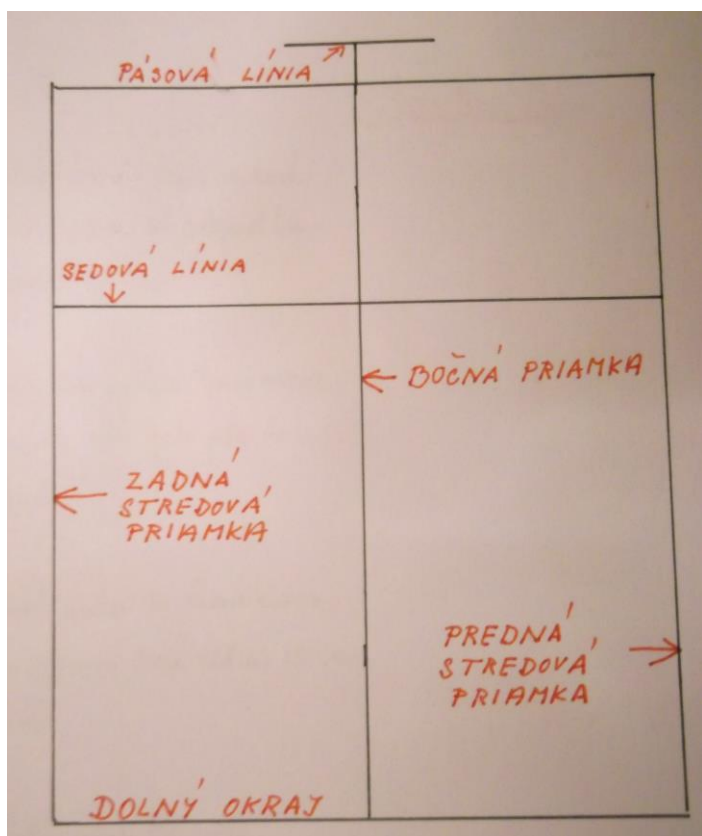 PÁSOVÁ LÍNIA
SEDOVÁ LÍNIA
BOČNÁ PRIAMKA
ZADNÁ
STREDOVÁ
PRIAMKA
PREDNÁ
STREDOVÁ
PRIAMKA
DOLNÝ OKRAJ